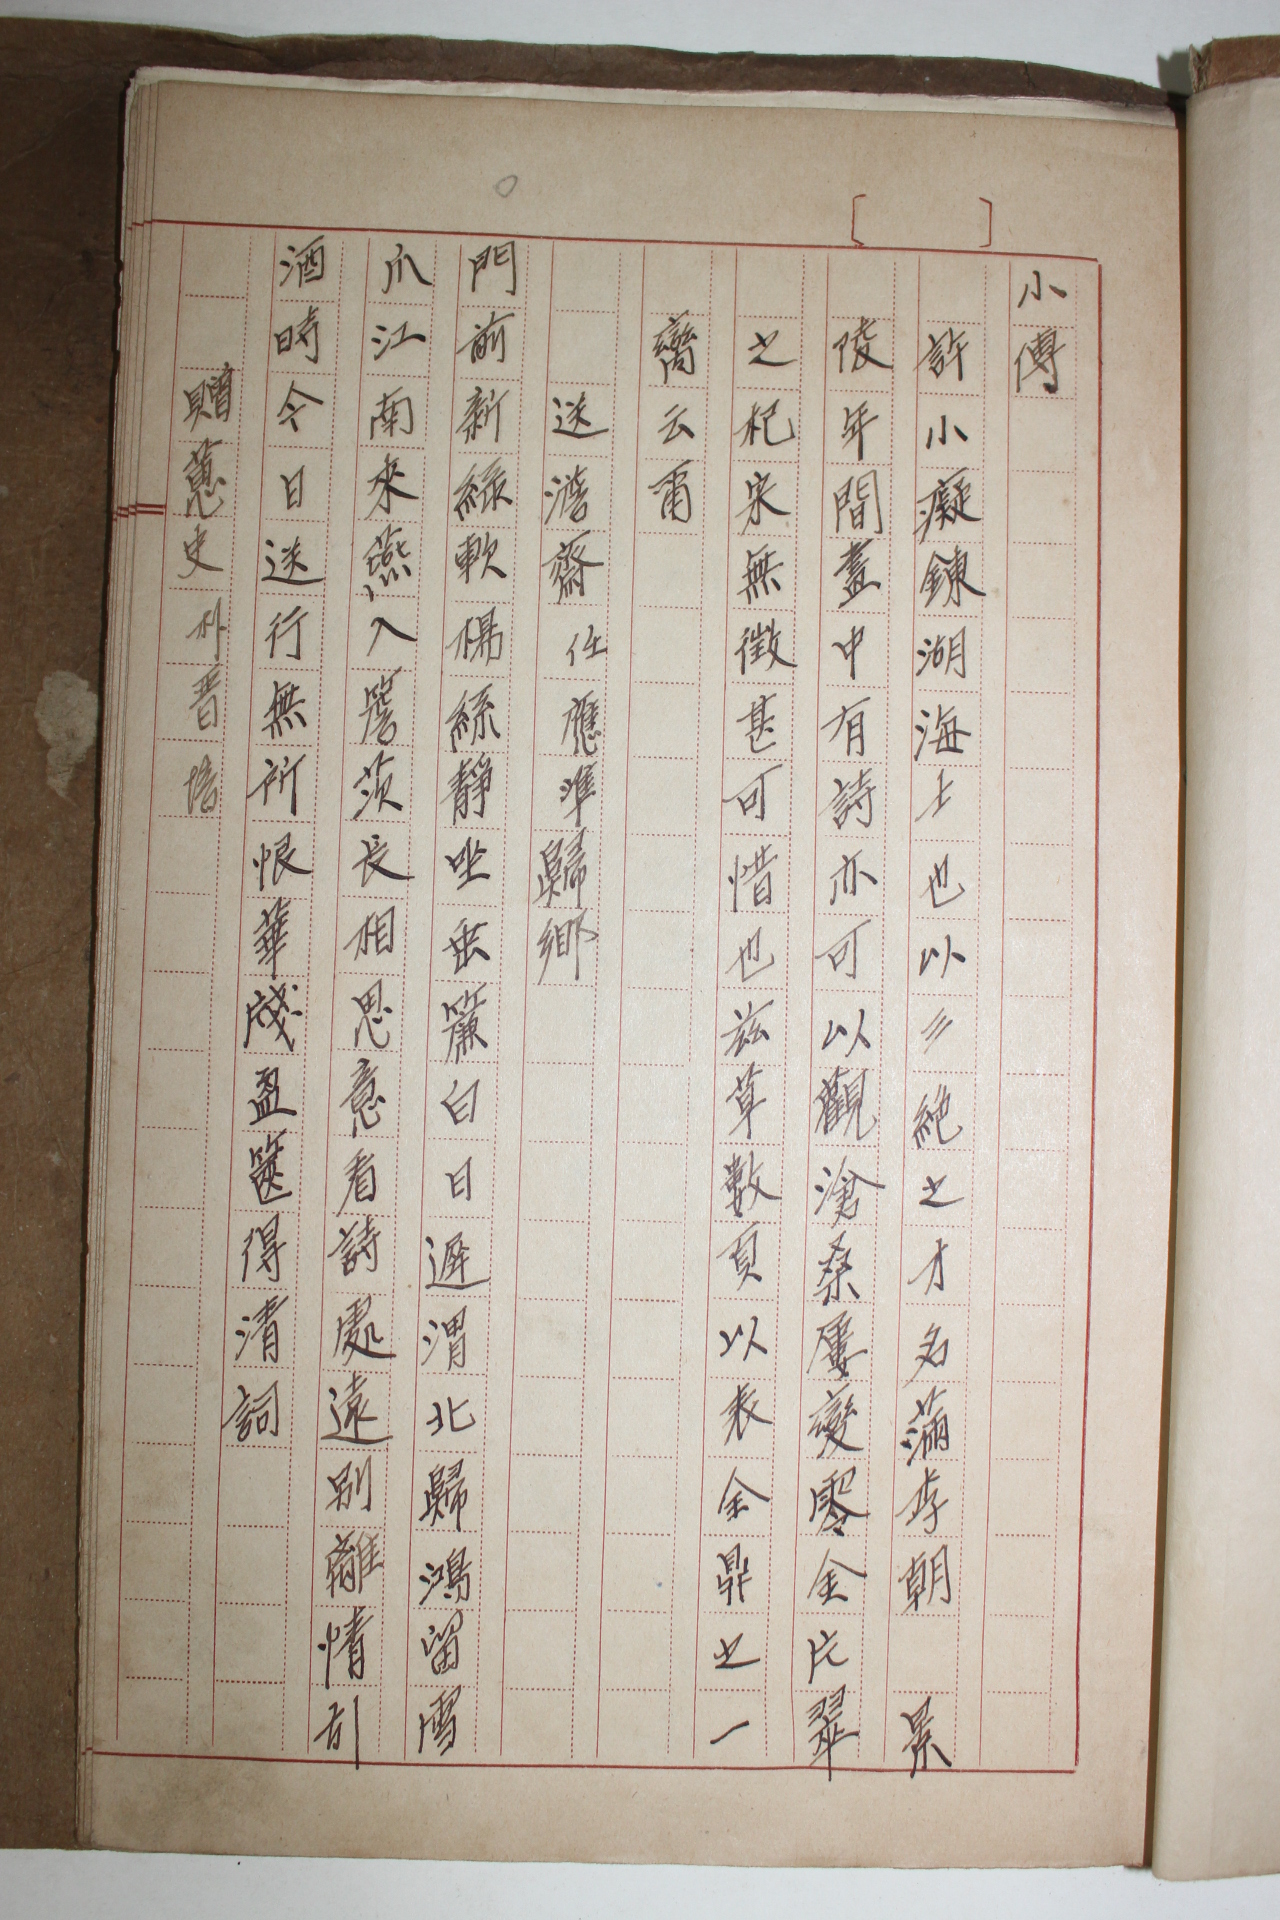 小傳
許小癡鍊湖海士也以三絶之才名滿李朝 景
陵年間蓋中有詩亦可以觀滄桑屢變零金片翠
之杞宋無徵甚可惜也玆草數頁以表全鼎之一
臠云爾
送澹齋任應準歸鄕
門前新綠軟楊絲靜坐垂簾白日遲渭北歸鴻留雪
爪江南來燕入簷茨長相思意看詩處遠別離情引
酒時今日送行無所恨華牋盈篋得清詞
贈蕙史朴晋